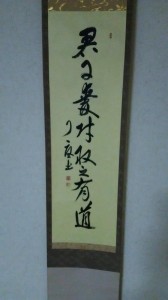 君子愛财取之有道